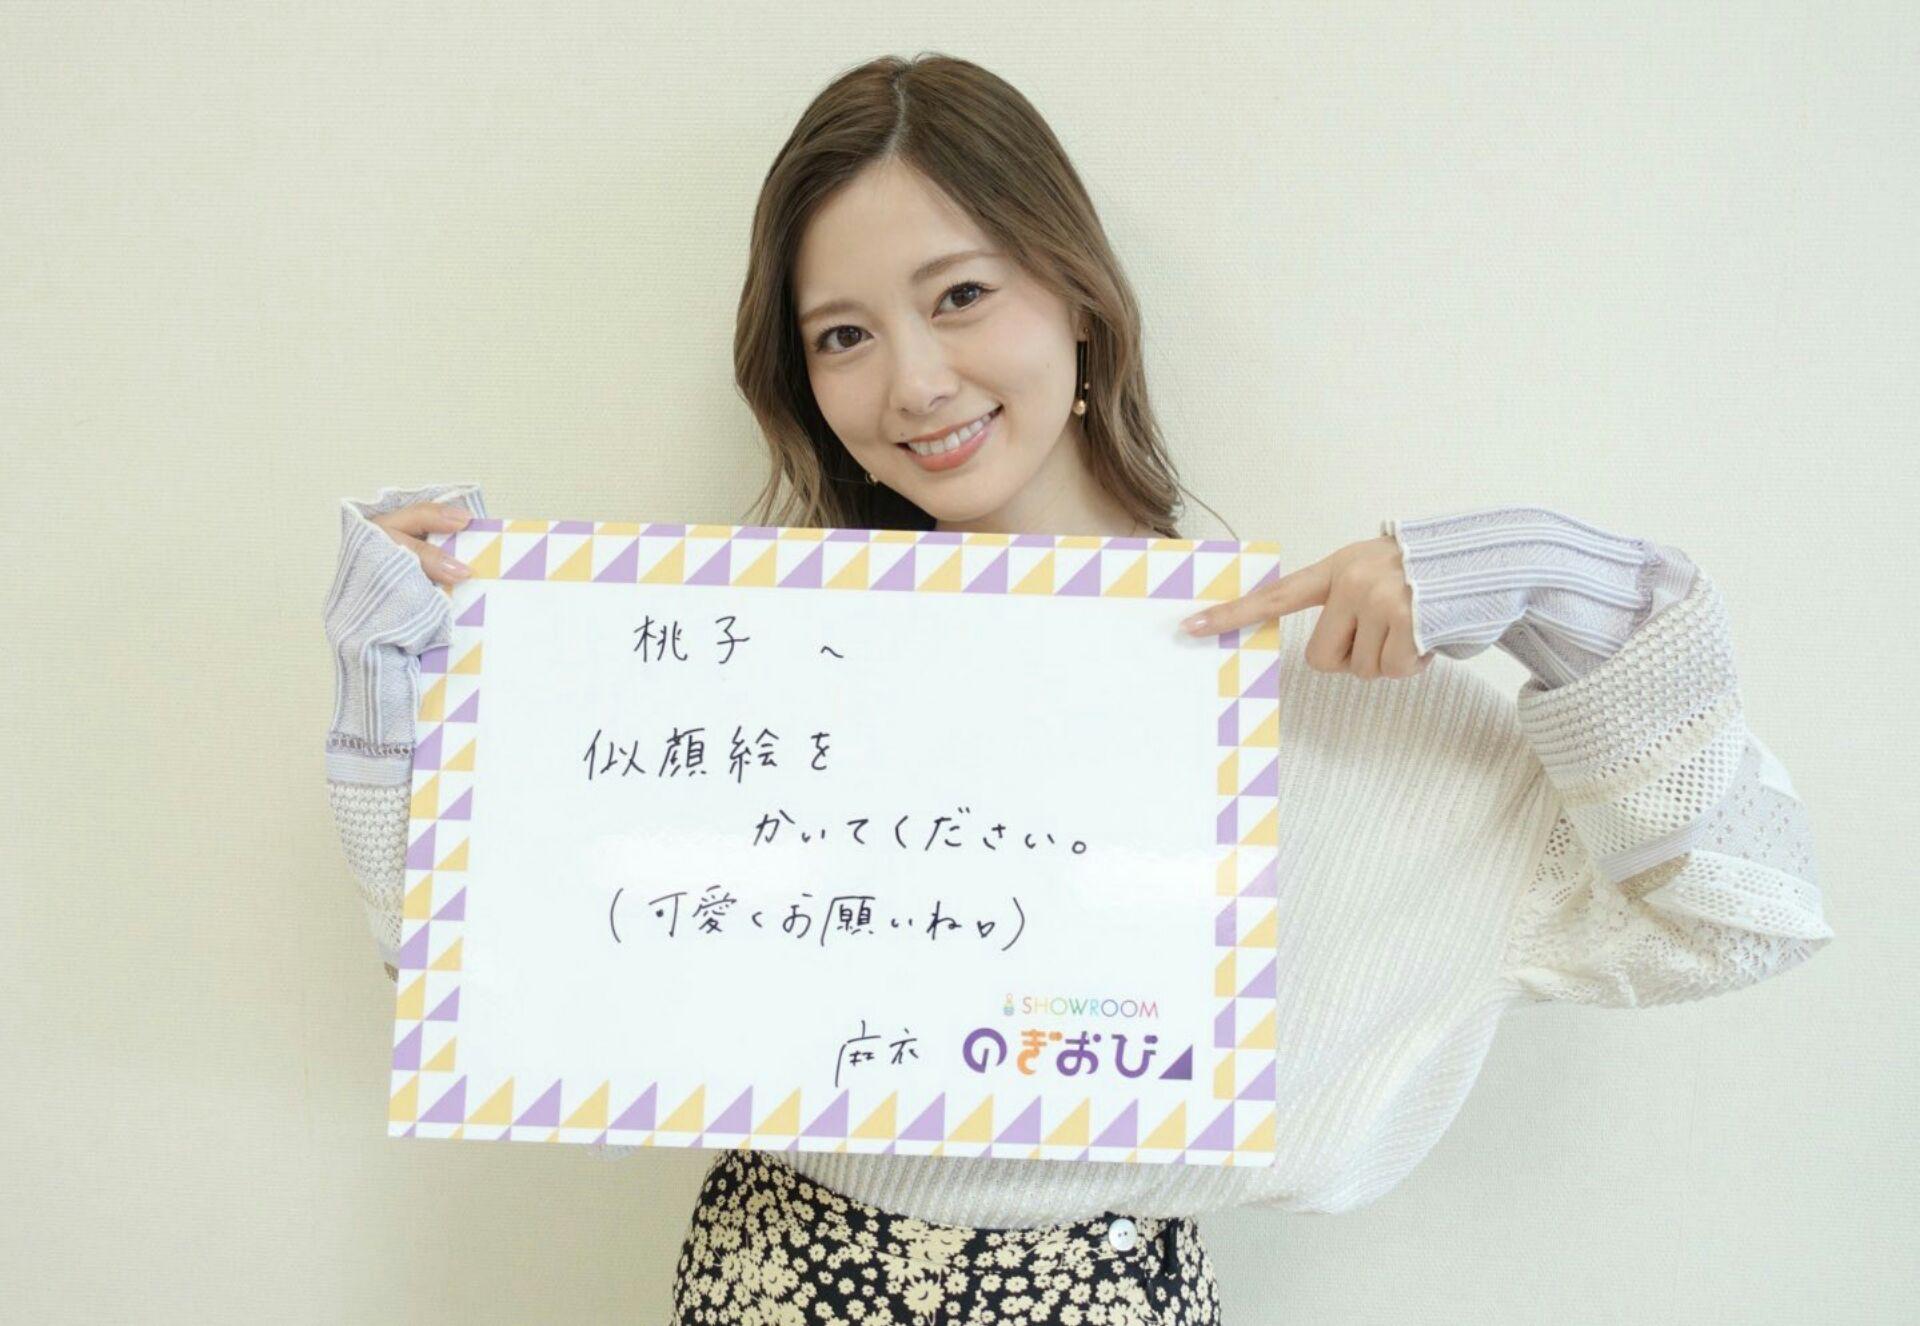 桃子へ
似顔絵を
かいてください。
(可愛くお願いね♡)
麻衣
SHOWROOM
のぎおび